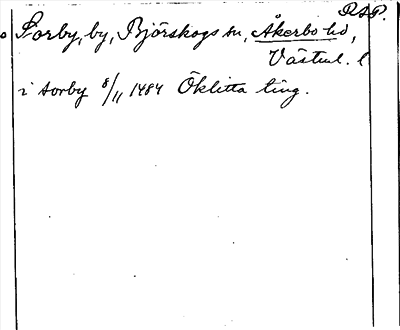 P.S.P.
Sorby, by, Björskogs sn, Åkerbo hd,
Västml. l
i sorby 8/11 1484 Öklitta ting.